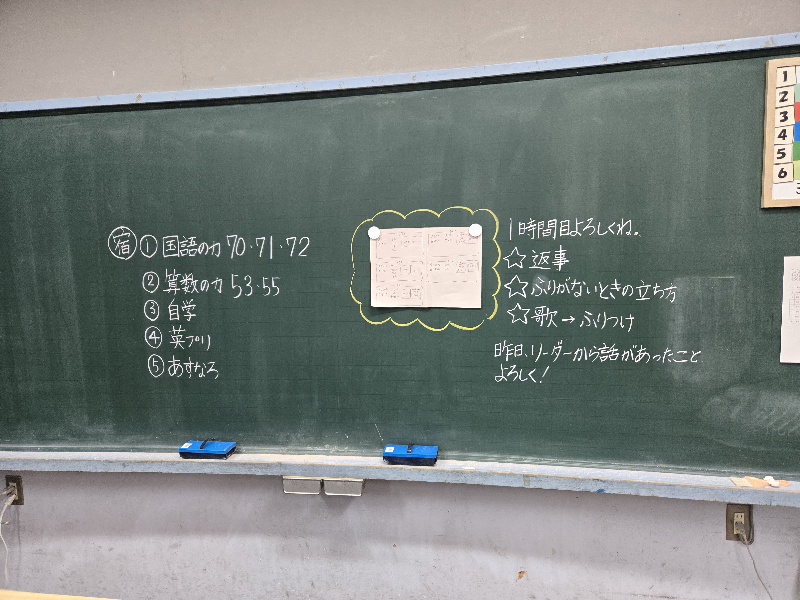 宿 ① 国語の力 70・71・72
② 算数の力 53・55
③ 自学
④ 英プリ
⑤ あすなろ
1時間目よろしくね。
☆ 返事
☆ ふりがないときの立ち方
☆ 歌→ふりつけ
昨日、リーダーから話があったこと
よろしく!
1
2
3
4
5
6